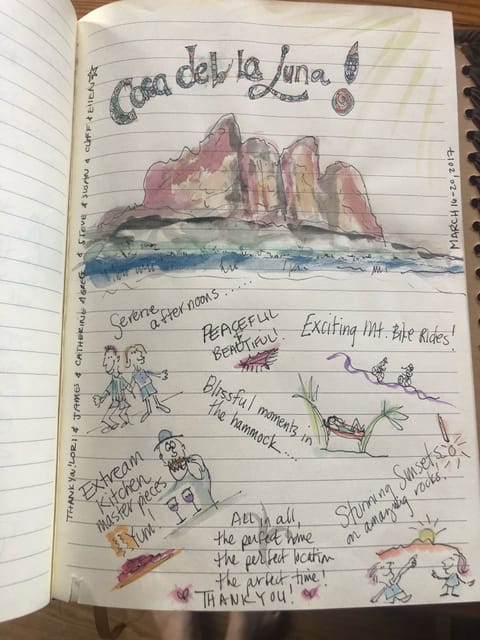 Casa del la Luna!
MARCH 16-20, 2017
THANK YOU! LORI & JAMES & CATHERINE & GREG & STEVE & SUSAN & CLIFF & ELLEN
Serene
afternoons......
PEACEFUL
+
BEAUTIFUL!
Exciting Mt. Bike Rides!
Blissful moments in
the hammock....
Extream
Kitchen
master pieces
Yum!
Stunning Sunsets
on amazing rocks!
All in all,
the perfect home
the perfect location
the perfect time!
THANK YOU!